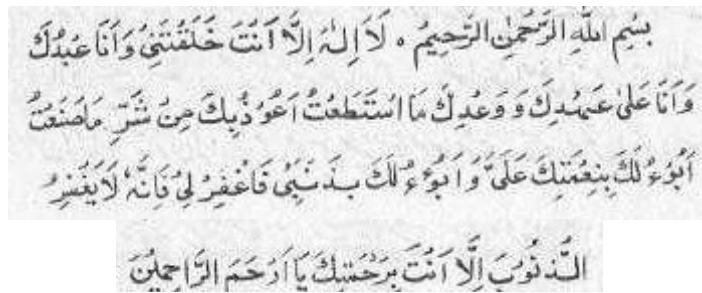 بِسْمِ اللّٰهِ الرَّحْمٰنِ الرَّحِيْمِ ۰ لَا اِلٰهَ اِلَّا اَنْتَ خَلَقْتَنِيْ وَاَنَا عَبْدُكَ
وَاَنَا عَلٰى عَهْدِكَ وَ وَعْدِكَ مَا اسْتَطَعْتُ اَعُوْذُبِكَ مِنْ شَرِّ مَا صَنَعْتُ
اَبُوْءُ لَكَ بِنِعْمَتِكَ عَلَيَّ وَ اَبُوْءُ لَكَ بِذَنْبِيْ فَاغْفِرْ لِيْ فَاِنَّهٗ لَا يَغْفِرُ
الذُّنُوْبَ اِلَّا اَنْتَ بِرَحْمَتِكَ يَا اَرْحَمَ الرَّاحِمِيْنَ